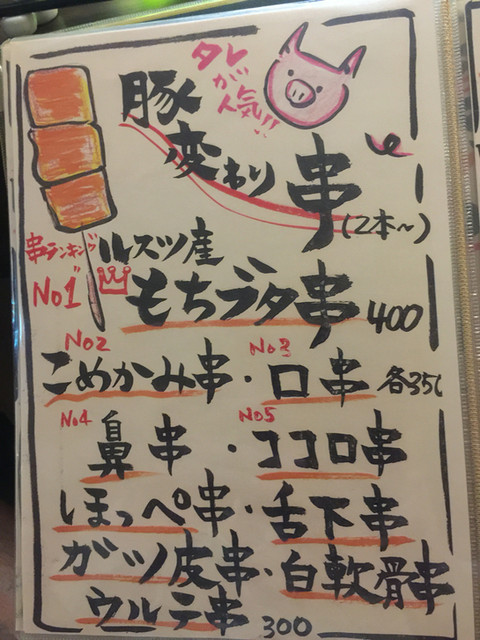 タレが人気!!
豚変わり串(2本〜)
串ランキング
No1
ルスツ産
もちブタ串 400
No2 No3
こめかみ串・口串 各350
No4 No5
鼻串・ココロ串
ほっぺ串・舌下串
ガツ皮串・白軟骨串
ウルテ串 300